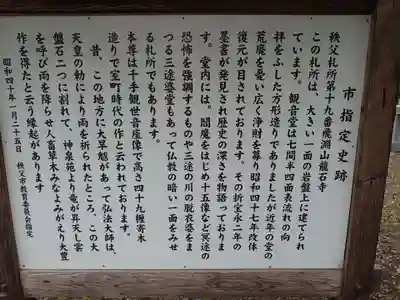 市指定史跡
秩父札所第十九番飛渕山龍石寺
この札所は、大きい一面の岩盤上に建てられ
ています。観音堂は七間半四面表流れの向
拝をふした方形造りでありましたが近年の堂の
荒廃を憂い広く浄財を募り昭和四十七年改体
復元が目されております。その折宝永二年の
墨書が発見され歴史の深さを物語っておりま
す。堂内には、閻魔をはじめ十五像など冥途の
恐怖を強調するものや三途の川の脱衣婆をま
つる三途婆堂もあって仏教の暗い一面をみせ
る札所でもあります。
本尊は千手観世音座像で高さ四十九糎寄木
造りで室町時代の作と云われております。
昔、この地方に大旱魃があって弘法大師は、
天皇の勅により雨を祈られたところ、この大
盤石二つに割れて、神泉苑より竜が昇天し雲
を呼び雨を降らせ人畜草木みなよみがえり大豊
作を得たと云う縁起があります
昭和四十年一月二十五日 秩父市教育委員会指定